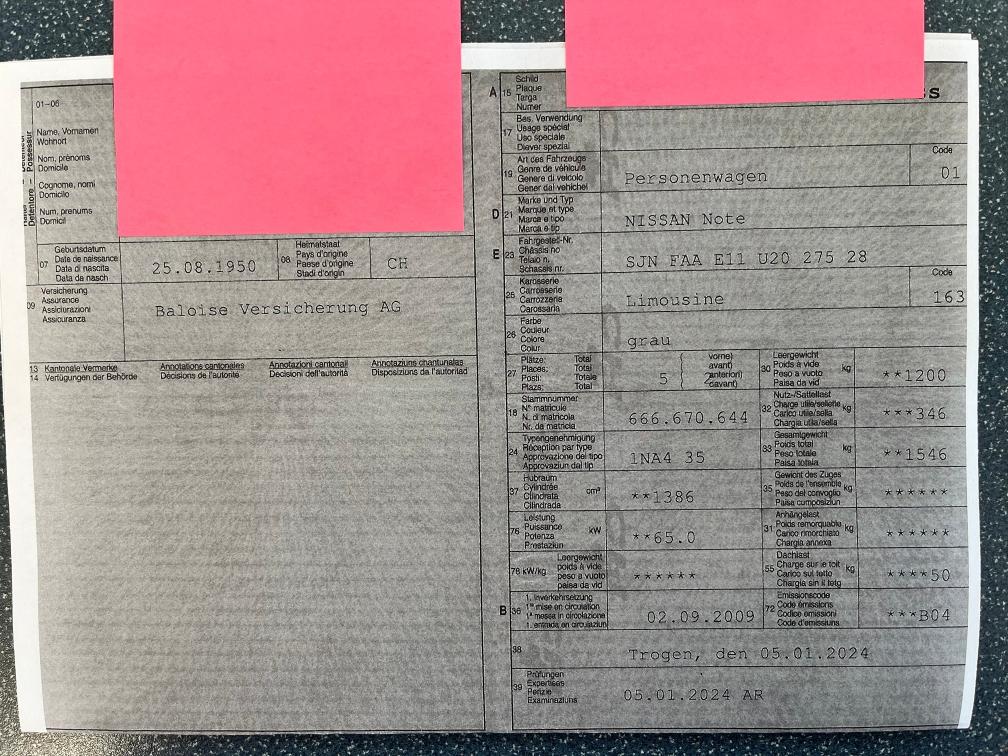 01–06
Name, Vornamen
Wohnort
Nom, prénoms
Domicile
Cognome, nomi
Domicilio
Num, prenums
Domicil
Detentore –
Possessur
07
Geburtsdatum
Date de naissance
Data di nascita
Data da nasch
25.08.1950
08
Heimatstaat
Pays d'origine
Paese d'origine
Stadi d'origin
CH
09
Versicherung
Assurance
Assicurazioni
Assicuranza
Baloise Versicherung AG
13 Kantonale Vermerke Annotations cantonales Annotazioni cantonali Annotaziuns chantunalas
14 Verfügungen der Behörde Décisions de l'autorité Decisioni dell'autorità Disposiziuns da l'autoritad
A 15
Schild
Plaque
Targa
Numer
17
Bes. Verwendung
Usage spécial
Uso speciale
Diever spezial
19
Art des Fahrzeugs
Genre de véhicule
Genere di veicolo
Gener dal vehichel
Personenwagen
Code
01
D 21
Marke und Typ
Marque et type
Marca e tipo
Marca e tip
NISSAN Note
E 23
Fahrgestell-Nr.
Châssis no
Telaio n.
Schassis nr.
SJN FAA E11 U20 275 28
25
Karosserie
Carrosserie
Carrozzeria
Carossaria
Limousine
Code
163
26
Farbe
Couleur
Colore
Colur
grau
27
Plätze: Total
Places: Total
Posti: Totale
Plazs: Total
5
vorne)
avant)
anteriori)
davant)
30
Leergewicht
Poids à vide
Peso a vuoto
Paisa da vid
kg
**1200
18
Stammnummer
N° matricule
N. di matricola
Nr. da matricla
666.670.644
32
Nutz-/Sattellast
Charge utile/sellette
Carico utile/sella
Chargia utila/sella
kg
***346
24
Typengenehmigung
Réception par type
Approvazione del tipo
Approvaziun dal tip
1NA4 35
33
Gesamtgewicht
Poids total
Peso totale
Paisa totala
kg
**1546
37
Hubraum
Cylindrée
Cilindrata
Cilindrada
cm³
**1386
35
Gewicht des Zuges
Poids de l'ensemble
Peso del convoglio
Paisa cumposiziun
kg
******
76
Leistung
Puissance
Potenza
Prestaziun
kW
**65.0
31
Anhängelast
Poids remorquable
Carico rimorchiato
Chargia annexa
kg
******
78 kW/kg
Leergewicht
poids à vide
peso a vuoto
paisa da vid
******
55
Dachlast
Charge sur le toit
Carico sul tetto
Chargia sin il tetg
kg
****50
B 36
1. Inverkehrsetzung
1re mise en circulation
1a messa in circolazione
1. entrada en circulaziun
02.09.2009
72
Emissionscode
Code émissions
Codice emissioni
Code d'emissiuns
***B04
38
Trogen, den 05.01.2024
39
Prüfungen
Expertises
Perizie
Examinaziuns
05.01.2024 AR